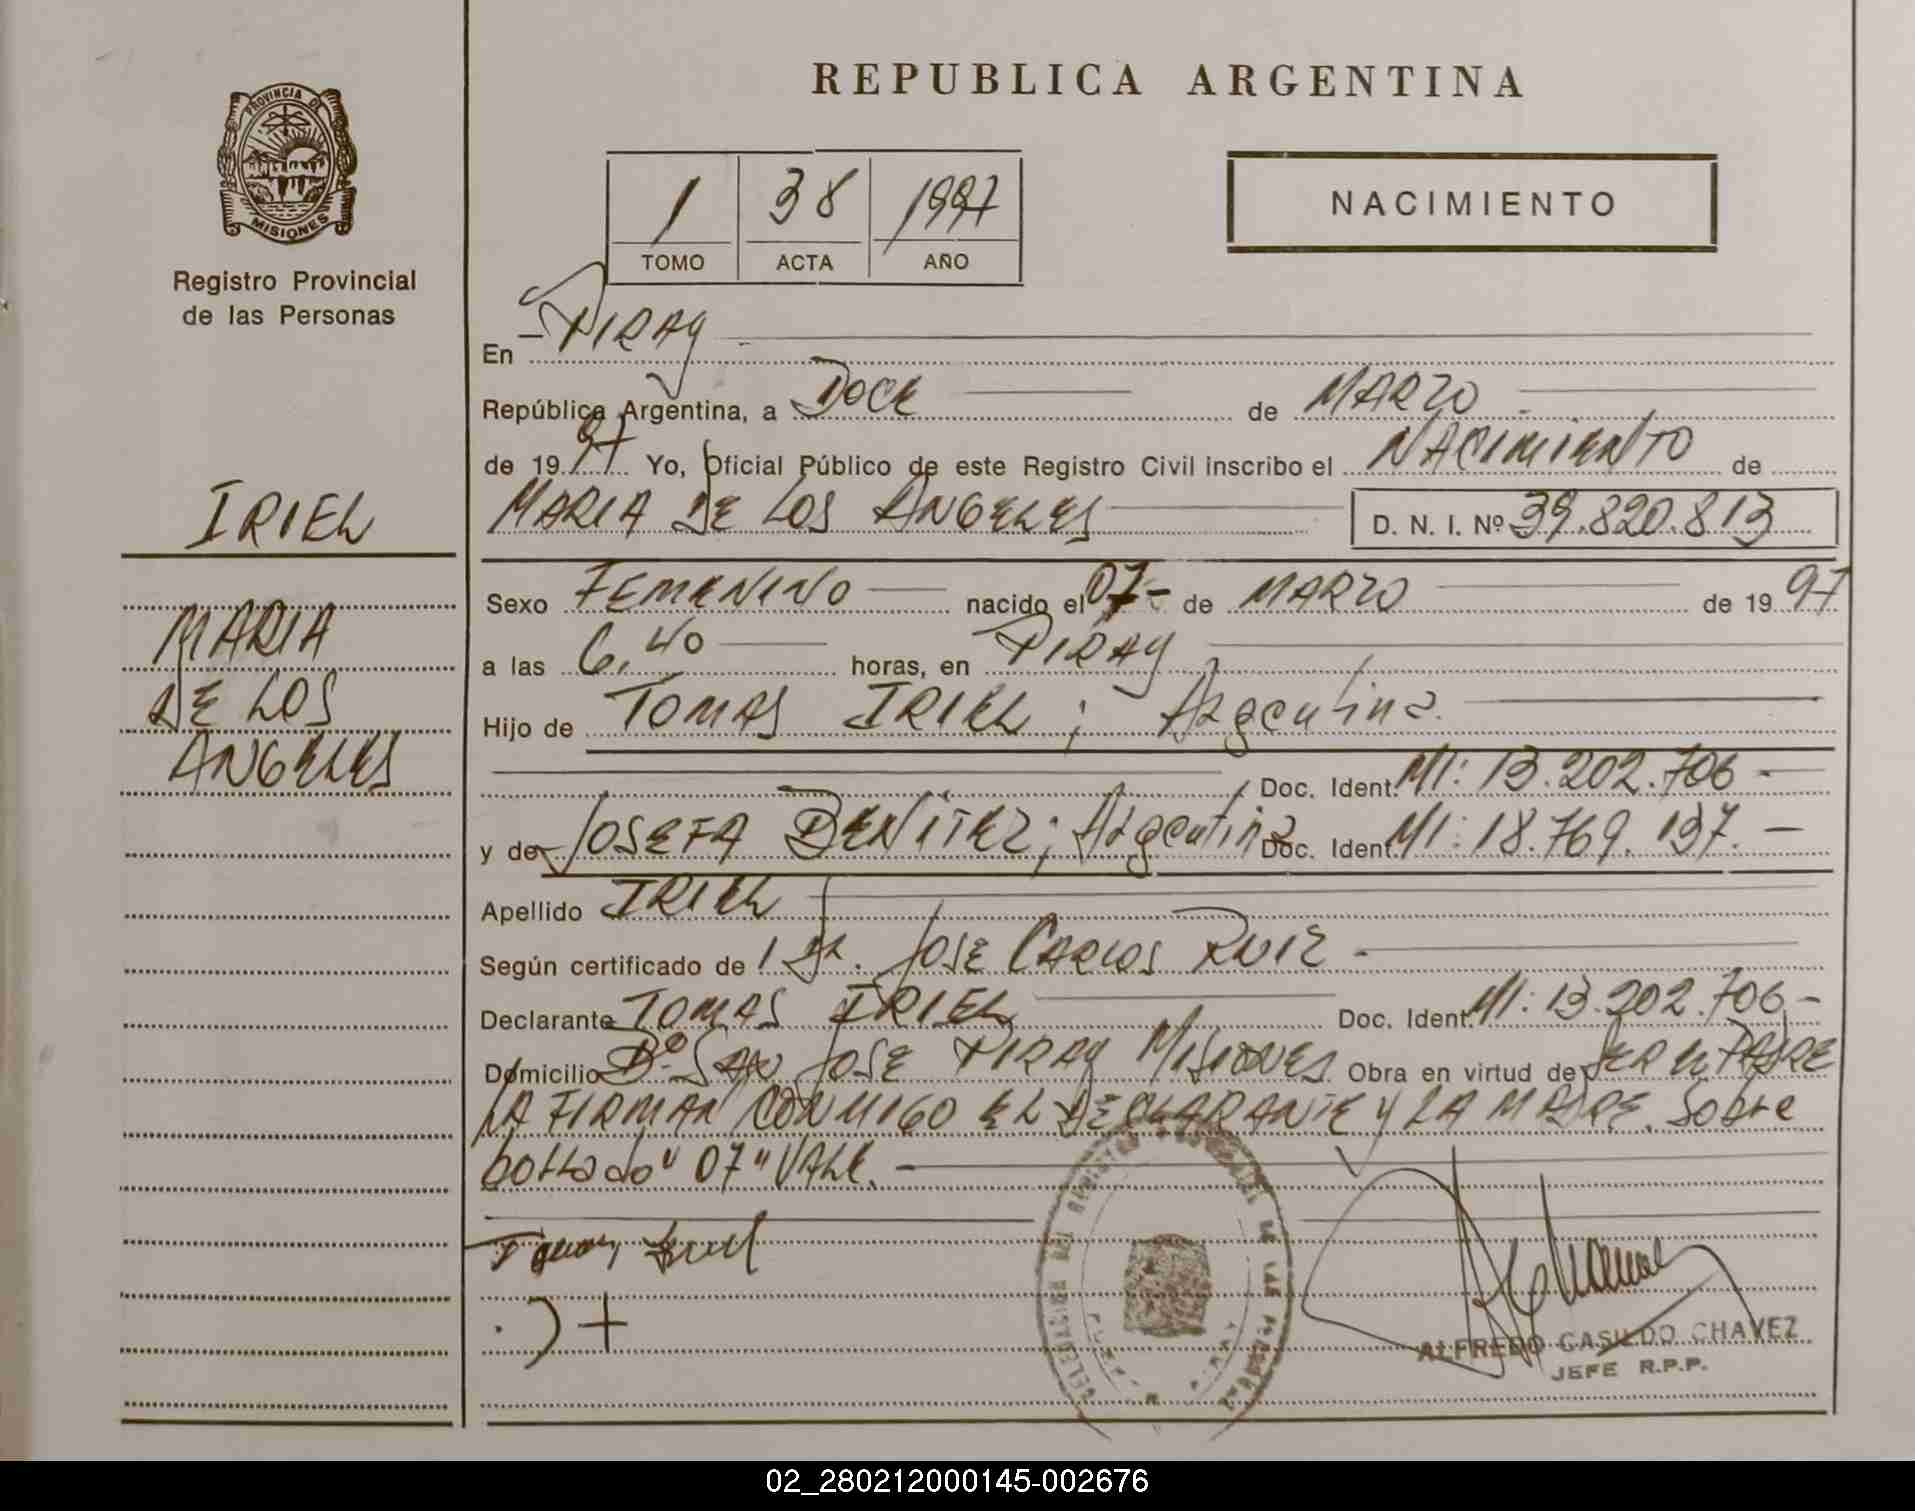 REPUBLICA ARGENTINA
PROVINCIA DE
MISIONES
Registro Provincial
de las Personas
1 38 1997
TOMO ACTA AÑO
NACIMIENTO
IRIEL
MARIA
DE LOS
ANGELES
En PIRAY
República Argentina, a DOCE de MARZO
de 19 97 Yo, Oficial Público de este Registro Civil inscribo el NACIMIENTO de
MARIA DE LOS ANGELES D. N. I. Nº 39.820.813
Sexo FEMENINO nacido el 07- de MARZO de 19 97
a las 6,40 horas, en PIRAY
Hijo de TOMAS IRIEL; Argentina.
Doc. Ident. MI: 13.202.706-
y de JOSEFA BENITEZ; Argentina Doc. Ident. MI: 18.769.137.-
Apellido IRIEL
Según certificado de 1 Dr. JOSE CARLOS RUIZ -
Declarante TOMAS IRIEL Doc. Ident. MI: 13.202.706-
Domicilio Bº SAN JOSE PIRAY MISIONES Obra en virtud de SER EL PADRE
LA FIRMAN CONMIGO EL DECLARANTE Y LA MADRE. Sobre
borrado "07" VALE. -
Iriel
ALFREDO CASILDO CHAVEZ
JEFE R.P.P.
02_280212000145-002676